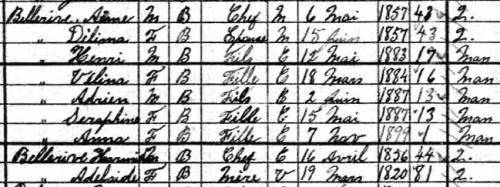 Bellerive, Aimé M B Chef M 6 Mai 1857 43 2.
" Dilima F B Epouse M 15 Juin 1857 43 2.
" Henri M B Fils E 12 Mai 1883 17 Man
" Vilina F B Fille E 18 Mars 1884 16 Man
" Adrien M B Fils E 2 Juin 1887 13 Man
" Seraphine F B Fille E 15 Mai 1887 13 Man
" Anna F B Fille E 7 Nov 1899 1 Man
Bellerive M B Chef E 16 Avril 1856 44 2.
" Adelaide F B Mere V 19 Mars 1820 81 2.